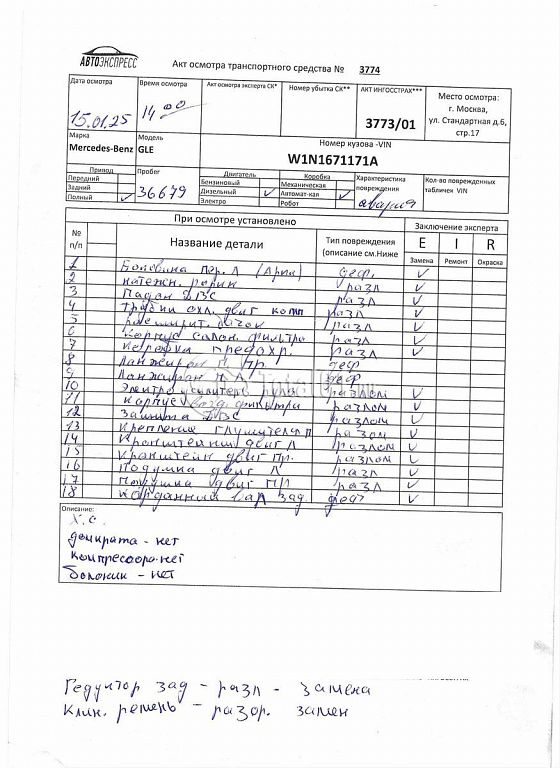 АВТОЭКСПРЕСС
Акт осмотра транспортного средства № 3774
Дата осмотра
15.01.25
Время осмотра
14 00
Акт осмотра эксперта СК*
Номер убытка СК**
АКТ ИНГОССТРАХ***
3773/01
Место осмотра:
г. Москва,
ул. Стандартная д.6,
стр.17
Марка
Mercedes-Benz
Модель
GLE
Номер кузова -VIN
W1N1671171A
Привод
Передний
Задний
Полный ✓
Пробег
36679
Двигатель
Бензиновый
Дизельный ✓
Электро
Коробка
Механическая
Автомат-кая ✓
Робот
Характеристика
повреждения
авария
Кол-во поврежденных
табличек VIN
При осмотре установлено
Заключение эксперта
№
п/п
Название детали
Тип повреждения
(описание см.Ниже
E I R
Замена Ремонт Окраска
1 Боковина пер. Л (Арка) деф. ✓
2 натежн. ролик разл ✓
3 Подон ДВС разл ✓
4 Трубки охл. двиг комп разл ✓
5 расширит. бачок разл ✓
6 корпус салон. фильтра разл ✓
7 Коробка предохр. разл ✓
8 Ланжирон П Пр деф
9 Ланжирон П Л деф
10 Электроусилитель руля разлом ✓
11 Корпус возд. фильтра разлом ✓
12 Защита ДВС разлом ✓
13 Крепление глушителя П разом ✓
14 Кронштейн двиг Л разлом ✓
15 Кронштейн двиг Пр. разлом ✓
16 Подушка двиг Л разл ✓
17 Подушка двиг ПР разл ✓
18 Карданный вал зад. деф ✓
Описание:
Х.С.
домкрата - нет
компрессора - нет
балонник - нет
Редуктор зад - разл - замена
Клин. ремень - разор. замен